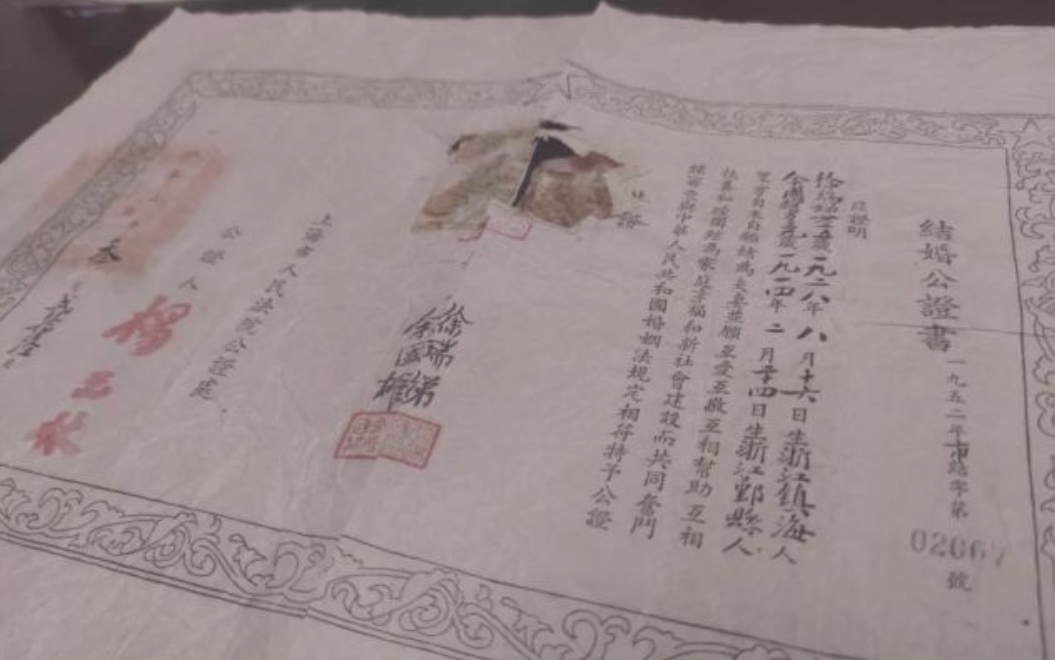 結婚公證書
一九五二年市結字第02067號
茲證明
徐瑞娣二五歲一九二八年八月十六日生浙江鎮海人
余國雄 歲一九一四年二月廿四日生浙江鄞縣人
雙方自本自願結為夫妻並願互愛互敬互相幫助互相
扶養和睦團結為家庭幸福和新社會建設而共同奮鬥
經審查與中華人民共和國婚姻法規定相符特予公證
此證
徐瑞娣
余國雄
上海市人民法院公證處
公證人
楊玉林